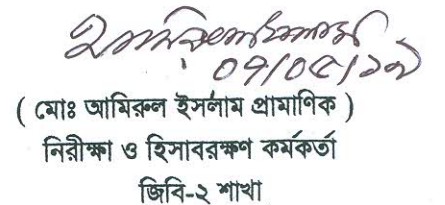 ০৭/০৫/১৭
( মোঃ আমিরুল ইসলাম প্রামাণিক )
নিরীক্ষা ও হিসাবরক্ষণ কর্মকর্তা
জিবি-২ শাখা